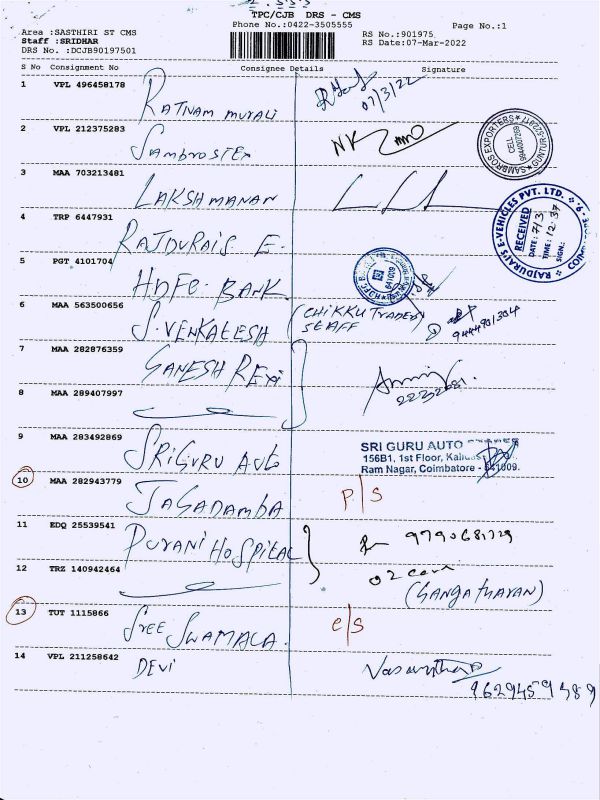 TPC/CJB DRS - CMS
Phone No.:0422-3505555
Page No.:1
Area :SASTHIRI ST CMS
Staff :SRIDHAR
DRS No. :DCJB90197501
RS No.:901975
RS Date:07-Mar-2022
S No Consignment No Consignee Details Signature
1 VPL 496458178 RATNAM MURALI 07/3/22
2 VPL 212375283 SAMBROS NK
SAMBROS EXPORTERS
CELL
3 MAA 703213481 LAKSHMANAN
4 TRP 6447931 RAJDURAIS E.
RAJDURAI'S E-VEHICLES PVT. LTD.
RECEIVED
DATE: 7/3
TIME: 12.37
SIGN:
5 PGT 4101704 HDFC BANK
641009
6 MAA 563500656 S. VENKATESH (CHIKKU TRADERS STAFF
9444901304
7 MAA 282876359 GANESH
8 MAA 289407997
9 MAA 283492869 SRI GURU AUTO
SRI GURU AUTO
156B1, 1st Floor,
Ram Nagar, Coimbatore - 641009.
10 MAA 282943779 JAGADAMBA P/S
11 EDQ 25539541 PURANI HOSPITAL 9790681729
12 TRZ 140942464
(Gangatharan)
13 TUT 1115866 SREE SWAMALA. C/S
14 VPL 211258642 DEVI